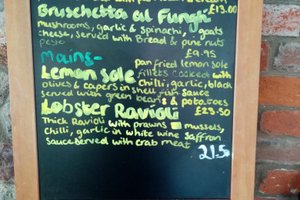 £13.00
Bruschetta al Funghi
mushrooms, garlic & spinachi, goats
cheese, served with Bread & pine nuts
pesto £9.95
Mains-
pan fried lemon sole
Lemon Sole fillets cooked with
olives & capers in chilli, garlic, black
served with green beans & potatoes
Lobster Ravioli £23.50
Thick Ravioli with prawns mussels,
Chilli, garlic in white wine saffron
Sauce served with crab meat
21.5